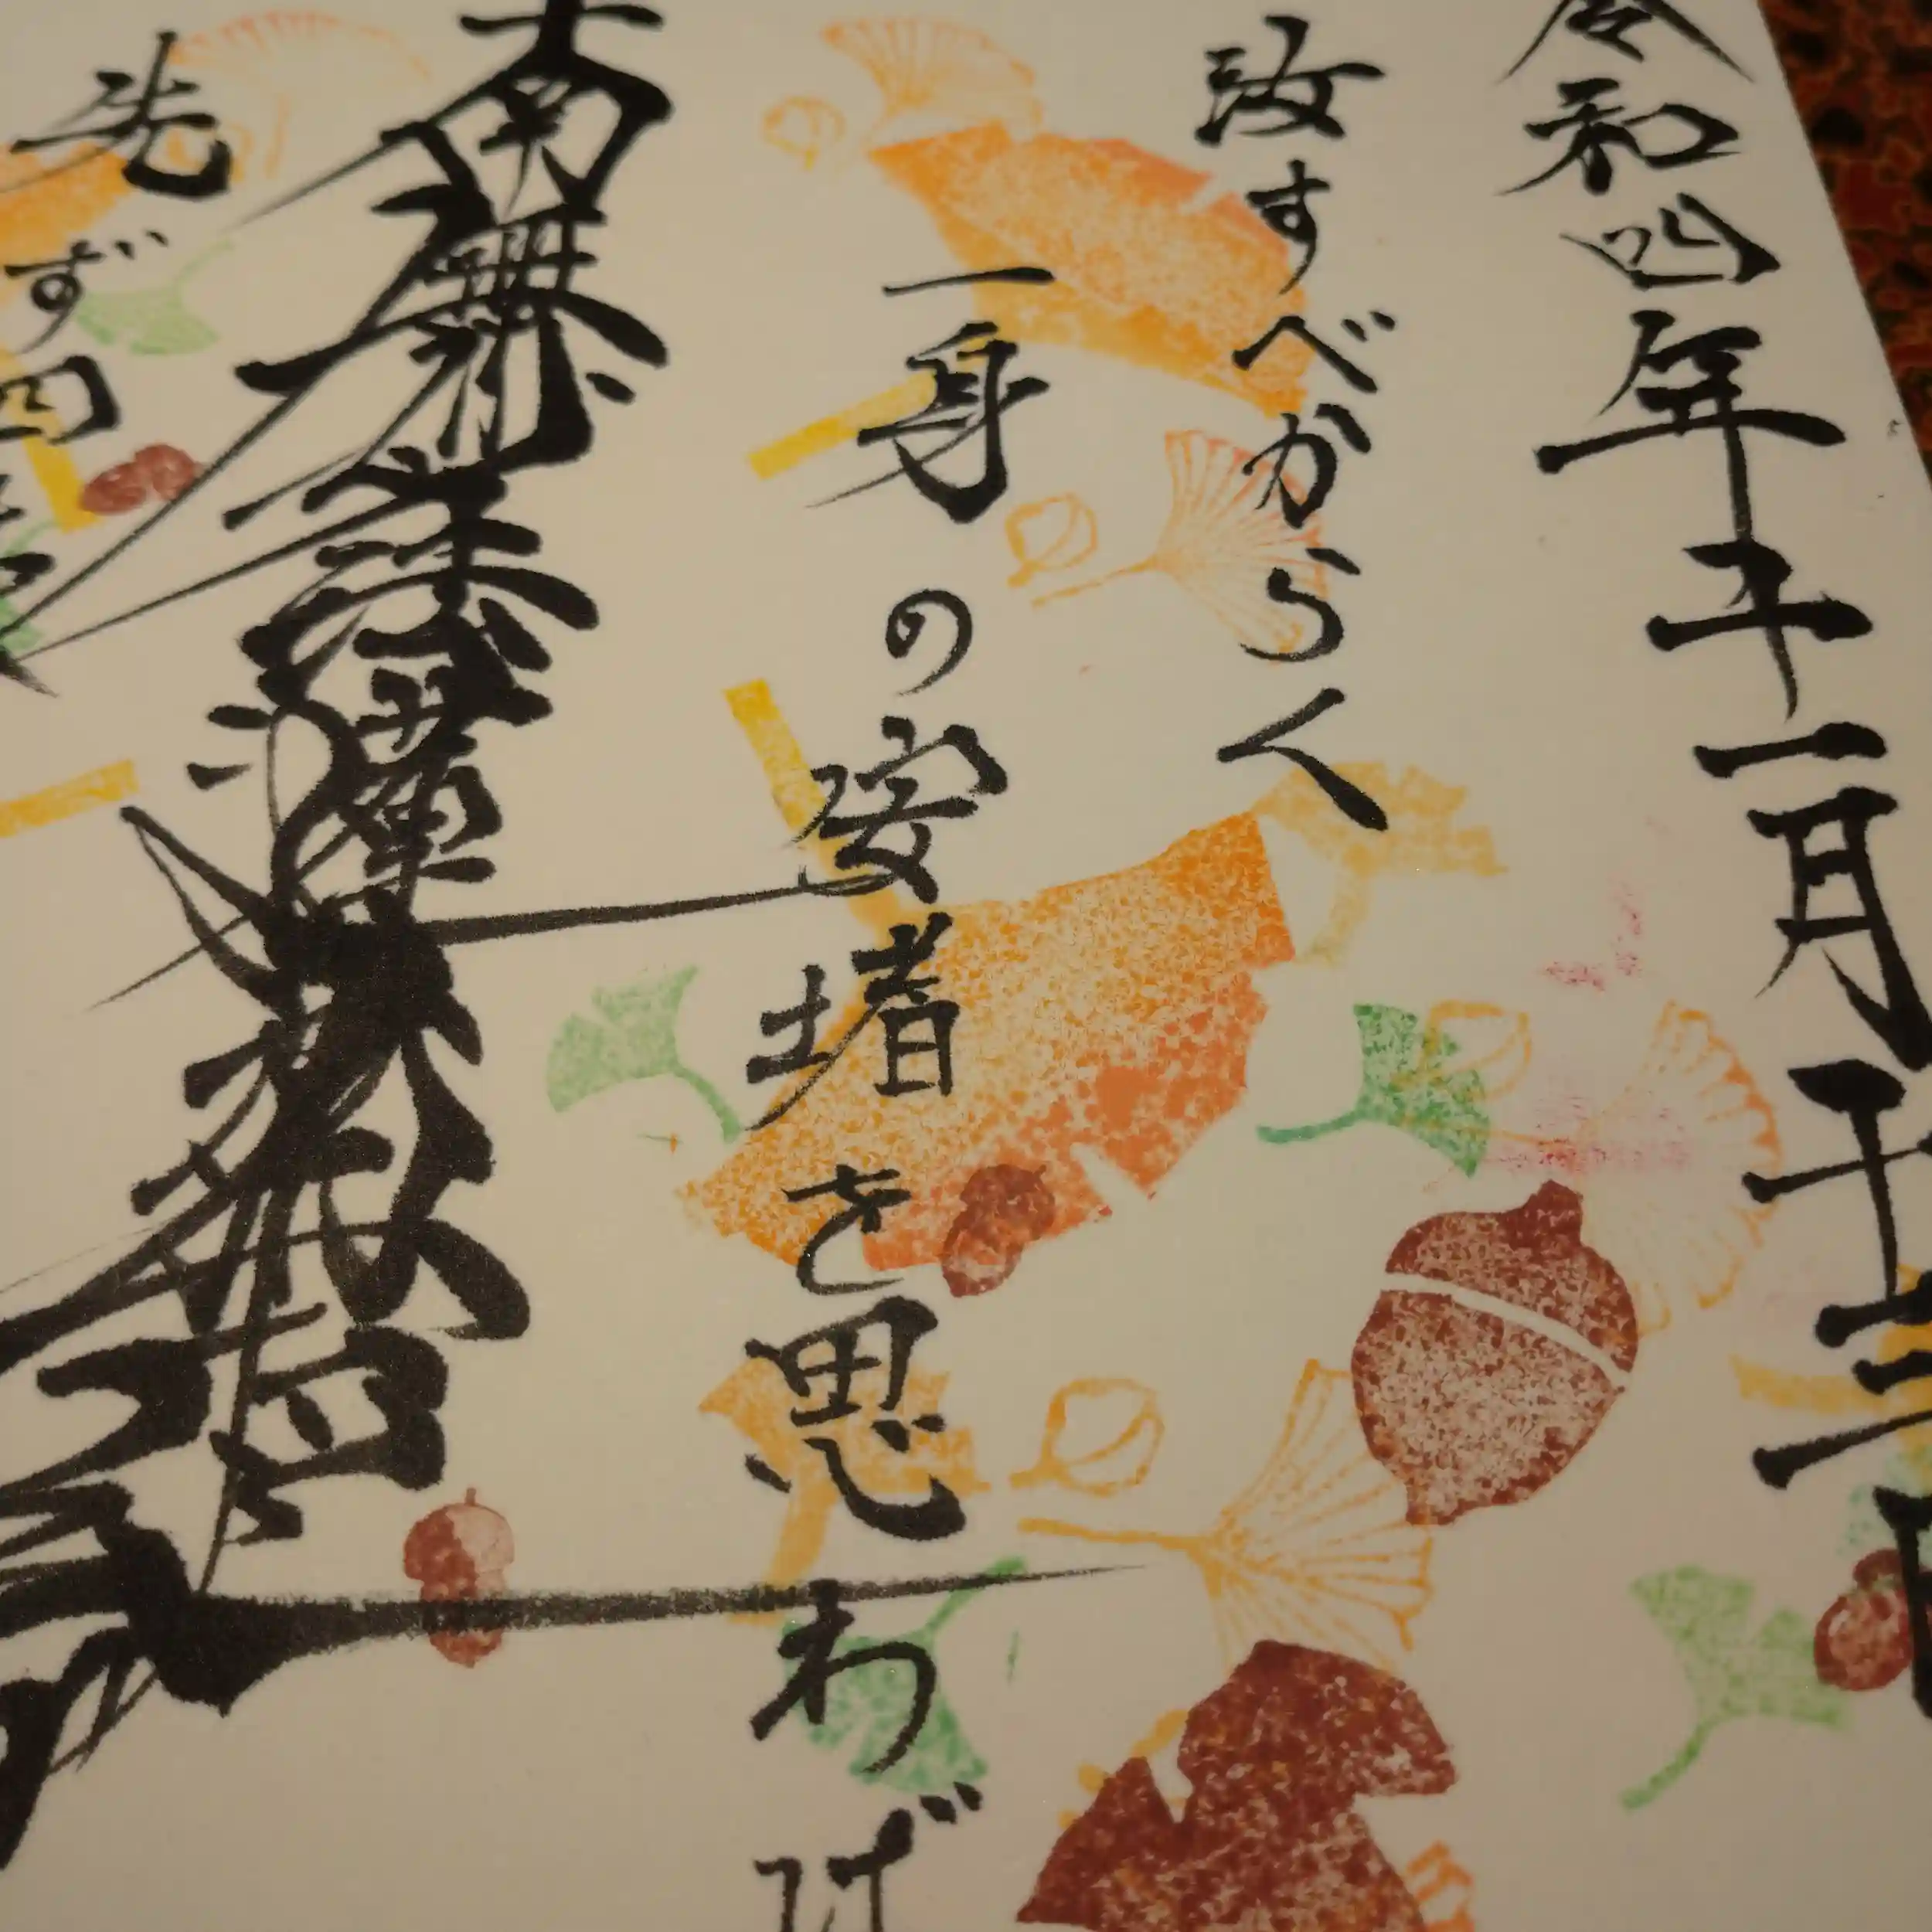 令和四年十一月十三日
汝すべからく
一身の安堵を思わば
南無妙法蓮華経
先ず四